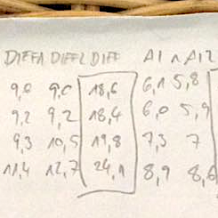 DIFFA DIFFL DIFF A1 A A12
9,0 9,0 18,6 6,1 5,8
9,2 9,2 18,4 6,0 5,9
9,3 10,5 19,8 7,3 7
11,4 12,7 24,1 8,9 8,6